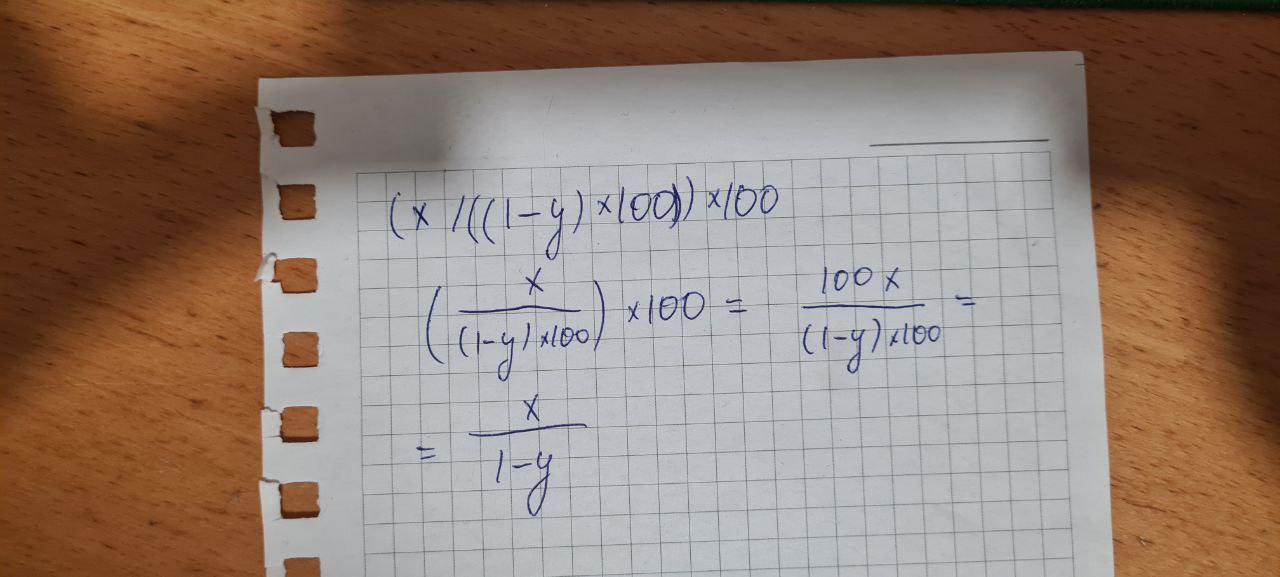 (x /((1-y) ×100)) ×100
(x / ((1-y) ×100)) ×100 = 100 x / ((1-y) ×100) =
= x / (1-y)